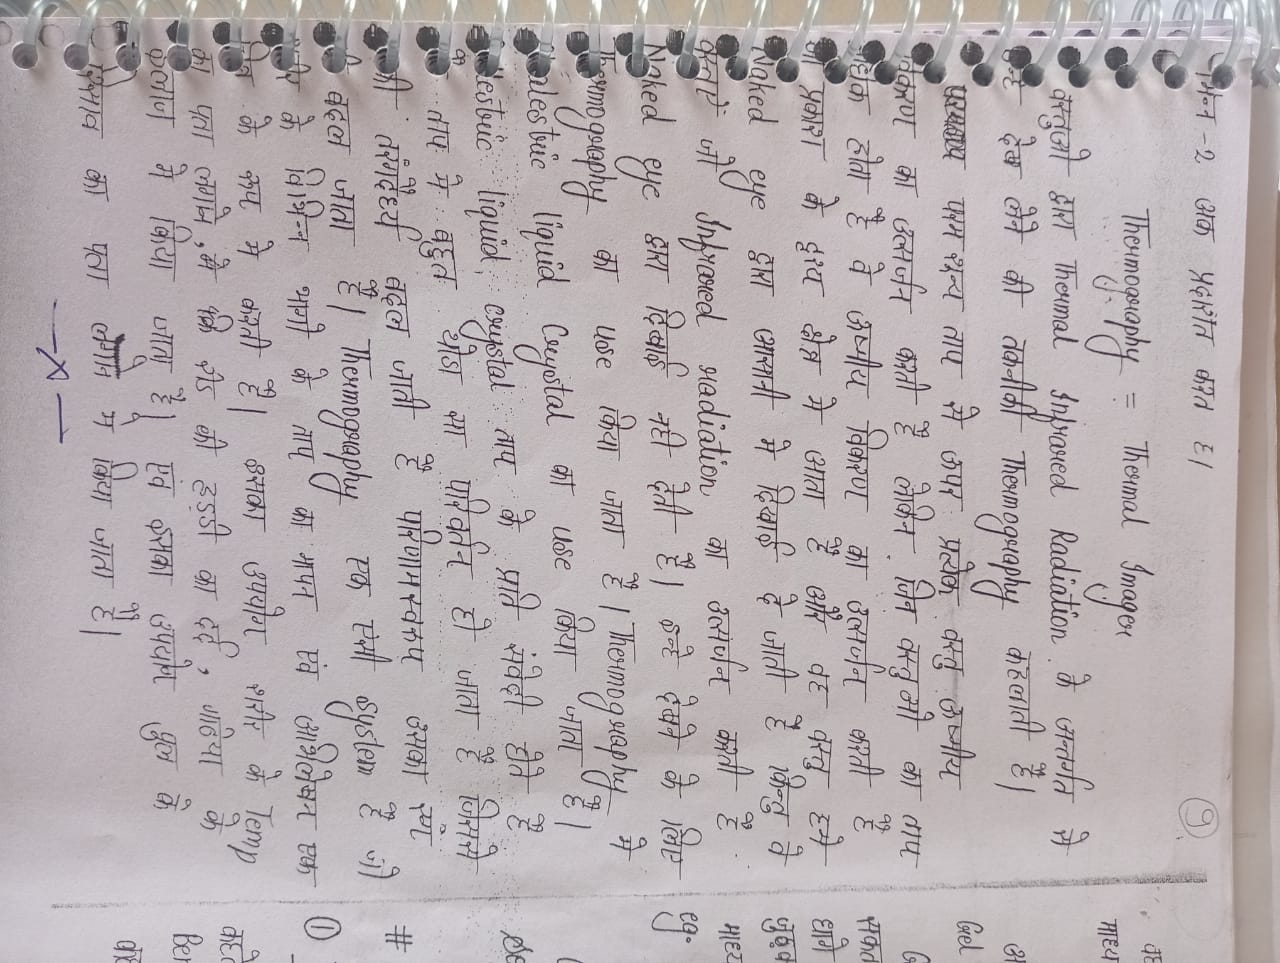 भिन्न -2 अंक प्रदर्शित करते है।
9
Thermography = Thermal Imager
वस्तुओ द्वारा Thermal Infrared Radiation के अन्तर्गत से
उन्हे देख लेने की तकनीकी Thermography कहलाती है।
परम शून्य ताप से ऊपर प्रत्येक वस्तु ऊष्मीय
विकरण का उत्सर्जन करती है लेकिन जिन वस्तुओ का ताप
अधिक होता है वे ऊष्मीय विकरण का उत्सर्जन करती है
जो प्रकाश के दृश्य क्षेत्र मे आता है और वह वस्तु हमे
Naked eye द्वारा आसानी मे दिखाई दे जाती है किन्तु वे
वस्तुऐं जो Infrared radiation का उत्सर्जन करती है
Naked eye द्वारा दिखाई नही देती है। इन्हे देखने के लिए
Thermography का use किया जाता है। Thermography मे
liquid Crystal का use किया जाता है।
liquid crystal ताप के प्रति संवेदी होते है
ताप मे बहुत थोडा सा परिवर्तन हो जाता है जिससे
की तरंगदैर्ध्य बदल जाती है परिणामस्वरूप उसका रंग
बदल जाता है। Thermography एक ऐसी system है जो
शरीर के विभिन्न भागो के ताप का मापन एवं अभिलेखन एक
चित्र के रूप मे करती है। इसका उपयोग शरीर के Temp
का पता लगाने मे रीड की हड्डी का दर्द, गठिया के
इलाज मे किया जाता है। एवं इसका उपयोग पुल के
रिसाव का पता लगाने मे किया जाता है।
—x—
वह
माध्य
Gel
सकत
धागे
जुड़व
माध्य
eg.
#
①
कहते
Ber